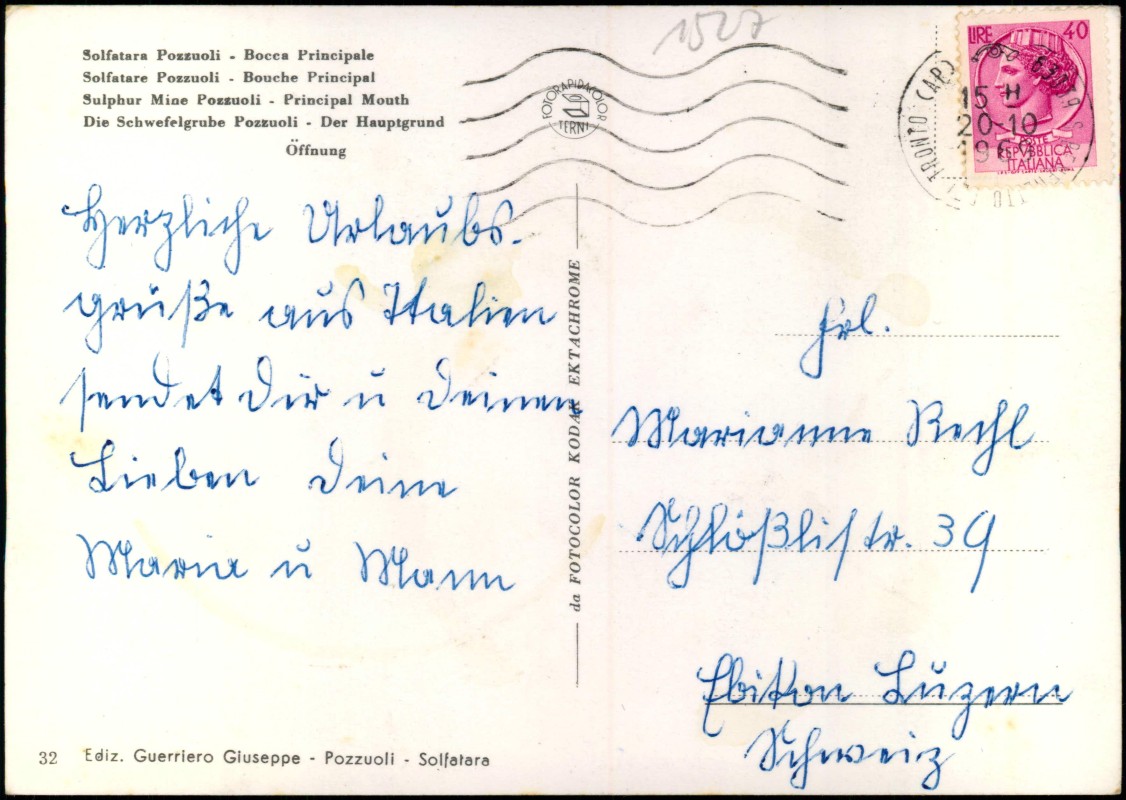 Solfatara Pozzuoli - Bocca Principale
Solfatare Pozzuoli - Bouche Principal
Sulphur Mine Pozzuoli - Principal Mouth
Die Schwefelgrube Pozzuoli - Der Hauptgrund
Öffnung
1527
FOTORAPIDACOLOR
TERNI
LIRE 40
POSTE
REPVBBLICA
ITALIANA
15-H
20-10
TRONTO (AP)
Herzliche Urlaubs-
grüße aus Italien
sendet Dir u Deinen
Lieben Deine
Maria u Mann
da FOTOCOLOR KODAK EKTACHROME
Frl.
Marianne Rechl
Schlößlistr. 39
Ebikon Luzern
Schweiz
32 Ediz. Guerriero Giuseppe - Pozzuoli - Solfatara